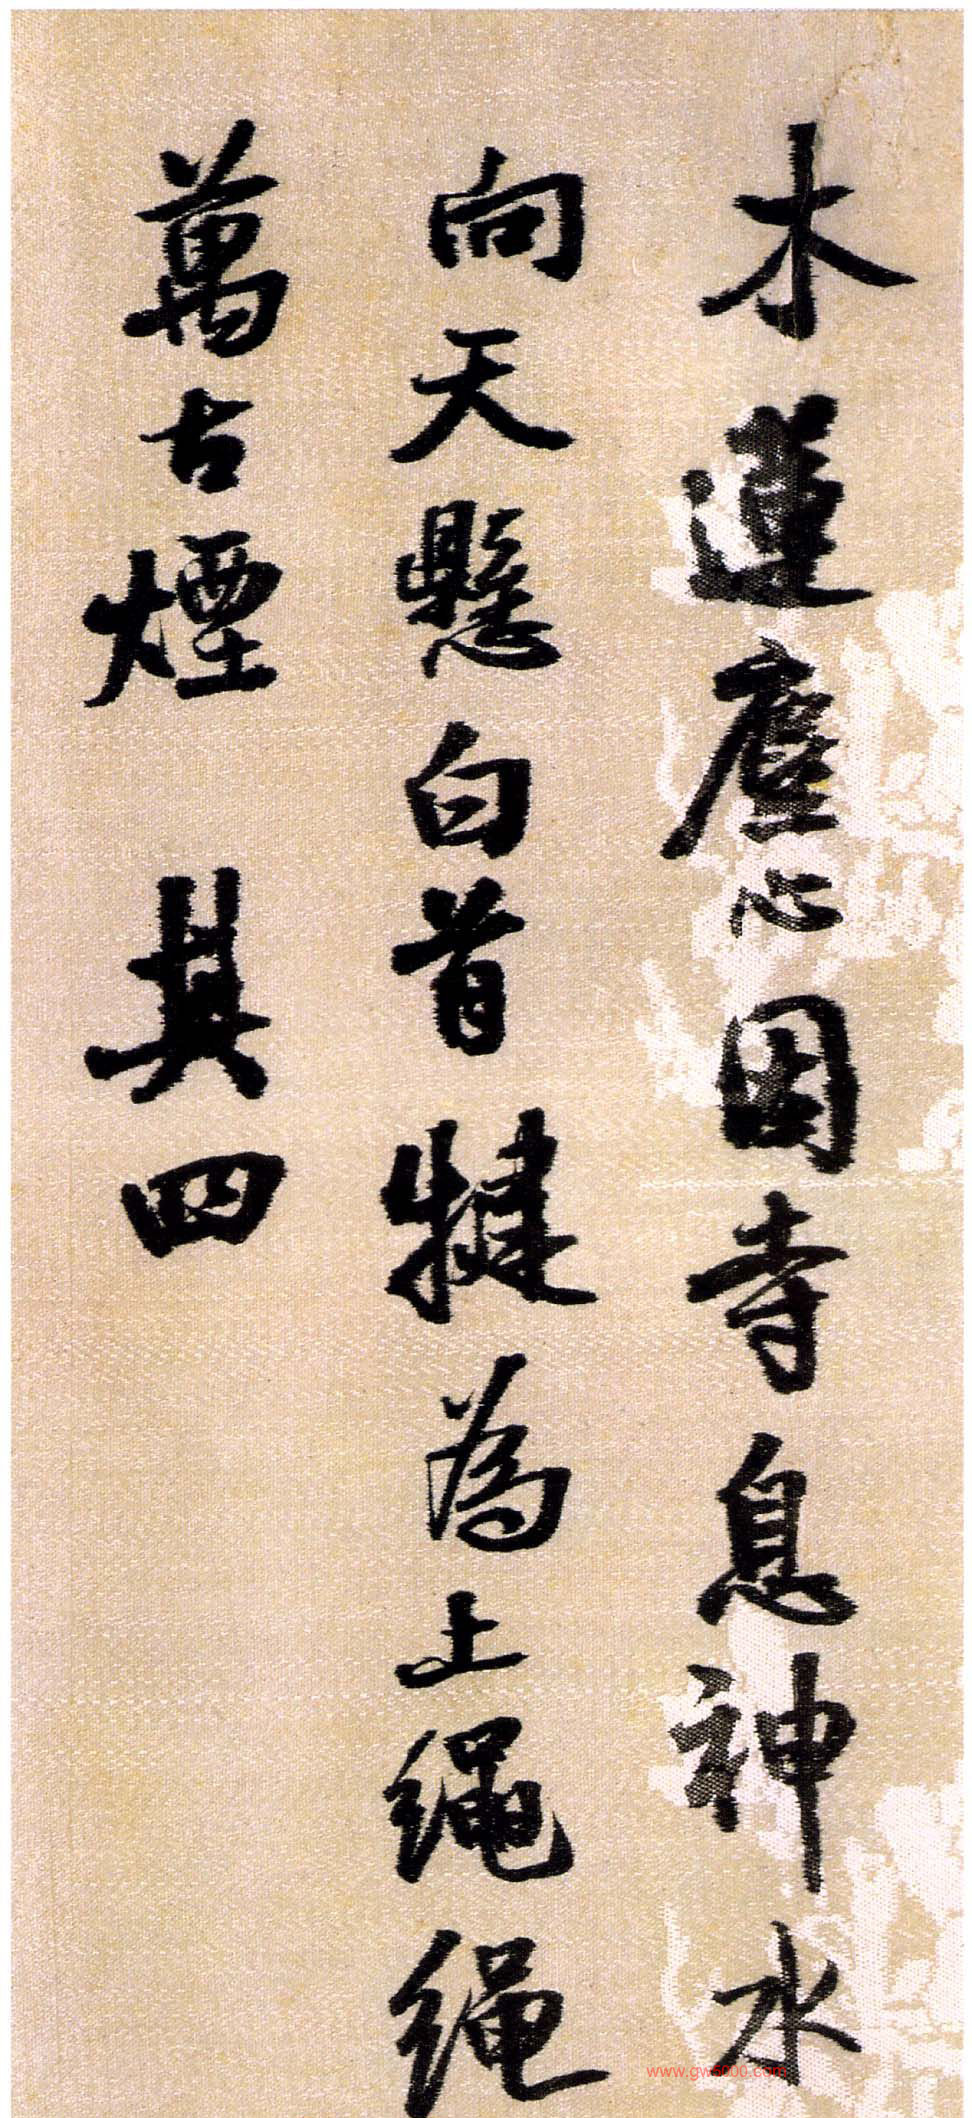 木蓮塵心因寺息神水
向天懸白首犍為上繩繩
萬古煙 其四
www.gw5000.com